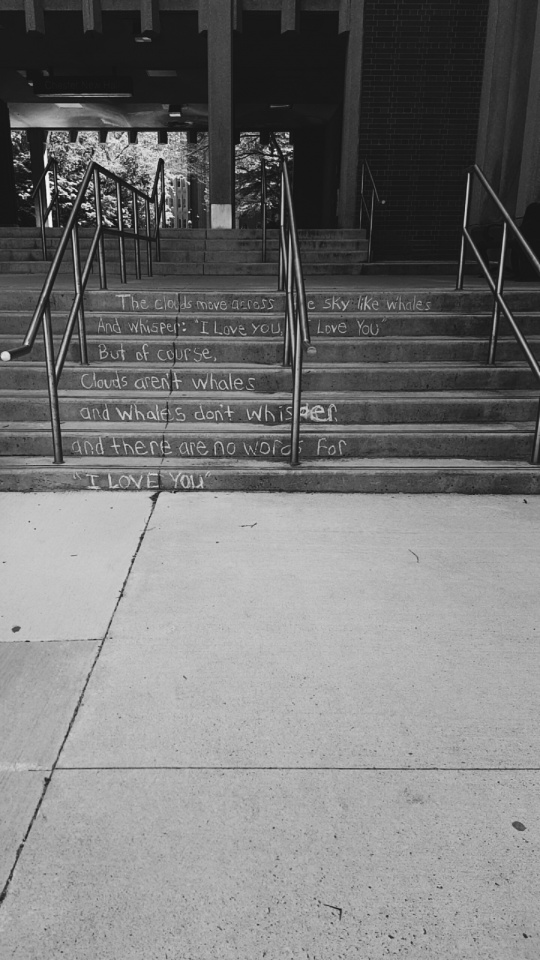 The clouds move across e sky like whales
And whisper: "I Love you, I Love You"
But of course,
Clouds aren't whales
and whales don't whisper
and there are no words for
"I LOVE YOU"